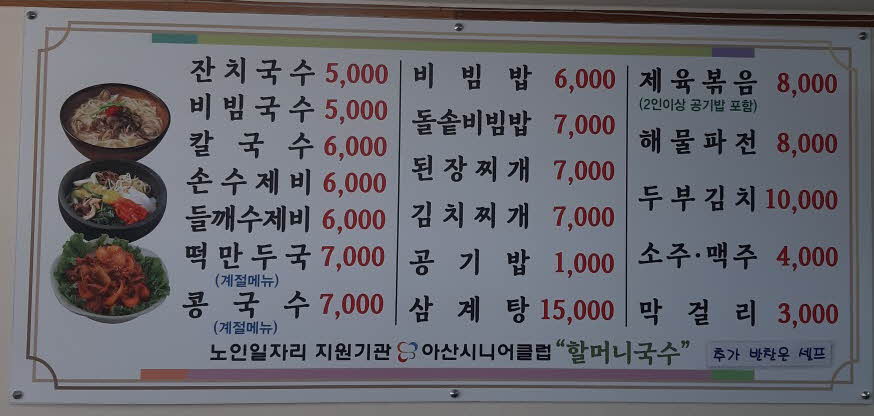 잔치국수 5,000
비빔국수 5,000
칼국수 6,000
손수제비 6,000
들깨수제비 6,000
떡만두국 7,000
(계절메뉴)
콩국수 7,000
(계절메뉴)
비빔밥 6,000
돌솥비빔밥 7,000
된장찌개 7,000
김치찌개 7,000
공기밥 1,000
삼계탕 15,000
제육볶음 8,000
(2인이상 공기밥 포함)
해물파전 8,000
두부김치 10,000
소주·맥주 4,000
막걸리 3,000
노인일자리 지원기관 아산시니어클럽 "할머니국수"
추가 반찬은 셀프